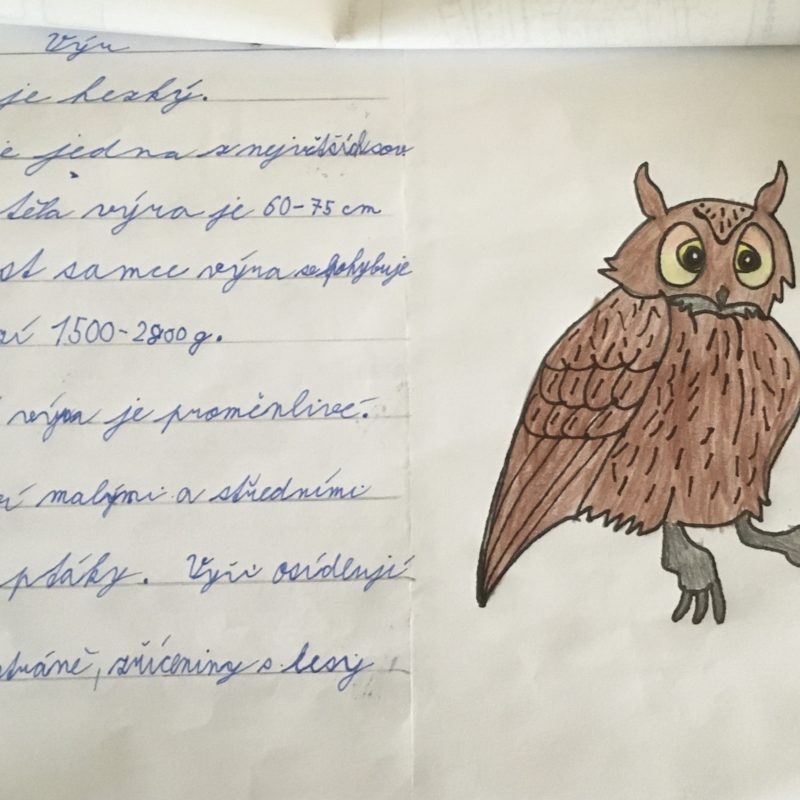 Výr
je hezký.
je jedna z největších sov
těla výra je 60-75 cm
st samce výra se pohybuje
zí 1500-2800 g.
výra je proměnlivé.
ví malými a středními
ptáky. Výři osídlují
stráně, zříceniny s lesy